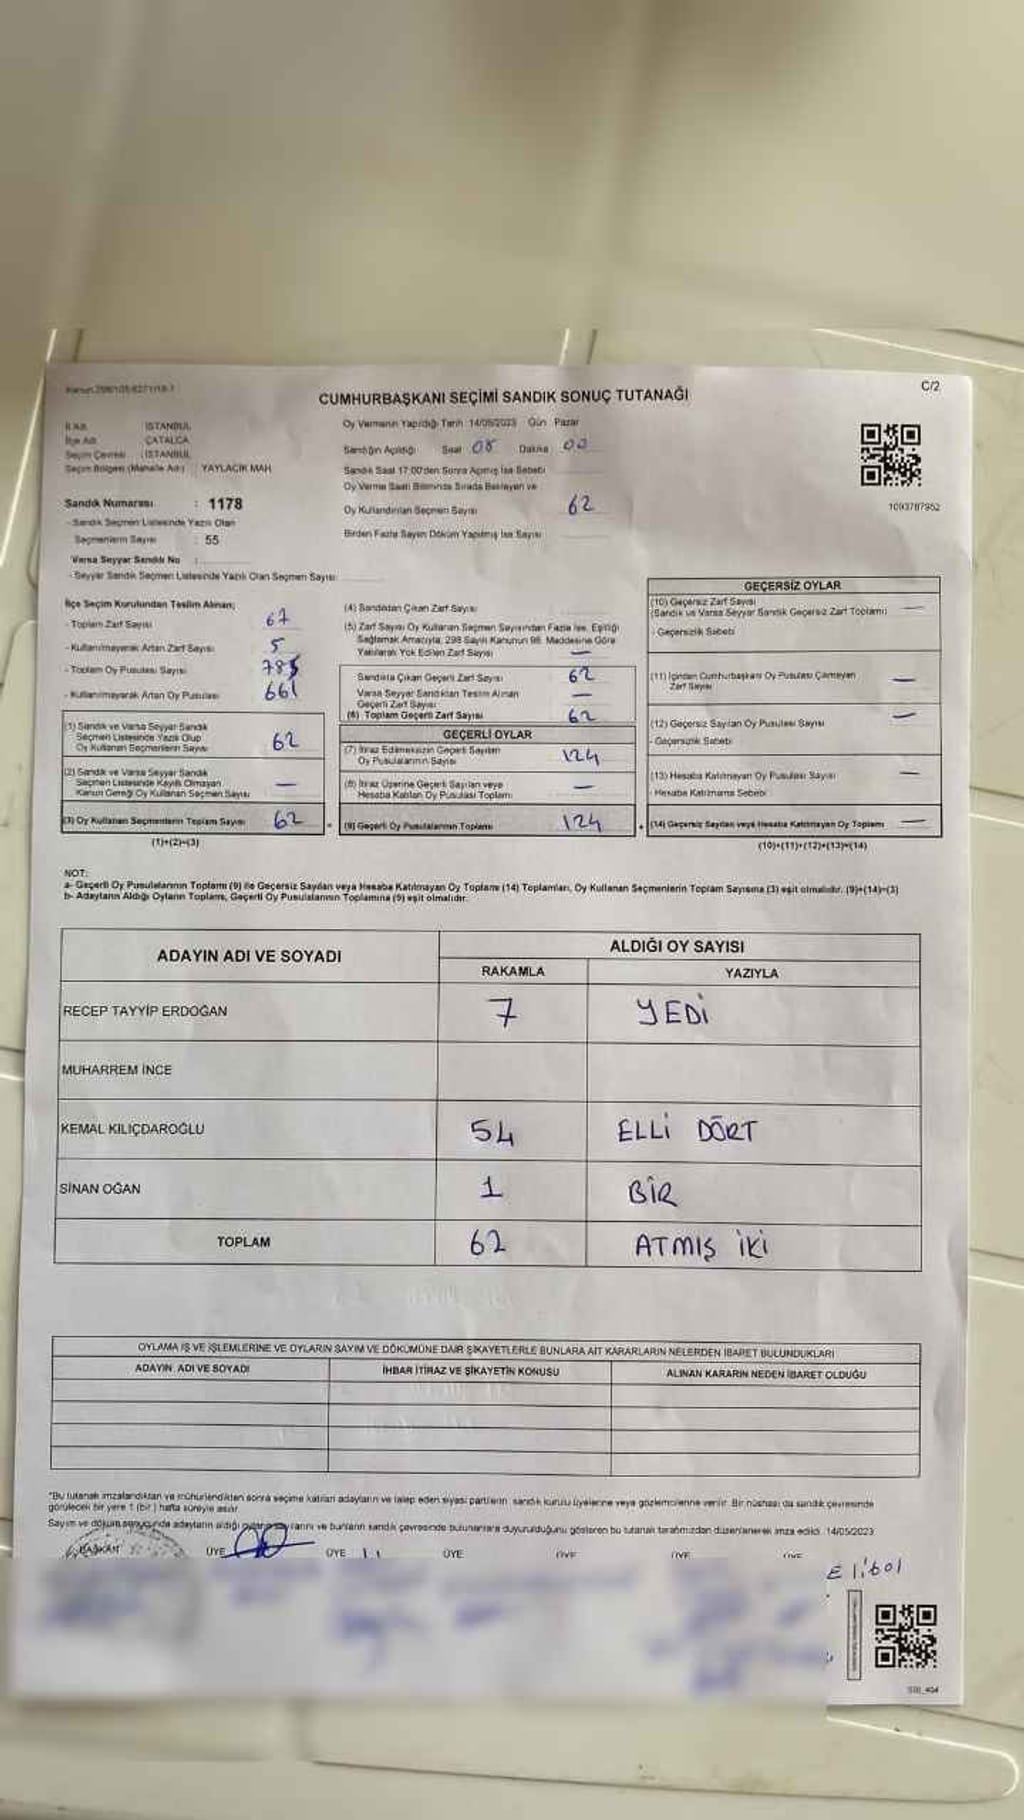 C/2
CUMHURBAŞKANI SEÇİMİ SANDIK SONUÇ TUTANAĞI
İl Adı : İSTANBUL
İlçe Adı : ÇATALCA
Seçim Çevresi : İSTANBUL
Seçim Bölgesi (Mahalle Adı) : YAYLACIK MAH.
Sandık Numarası : 1178
- Sandık Seçmen Listesinde Yazılı Olan
Seçmenlerin Sayısı : 55
Varsa Seyyar Sandık No :
- Seyyar Sandık Seçmen Listesinde Yazılı Olan Seçmen Sayısı:
Oy Vermenin Yapıldığı Tarih 14/05/2023 Gün Pazar
Sandığın Açıldığı Saat 08 Dakika 00
Sandık Saat 17:00'den Sonra Açılmış İse Sebebi
Oy Verme Saati Bitiminde Sırada Bekleyen ve
Oy Kullandırılan Seçmen Sayısı 62
Birden Fazla Sayım Döküm Yapılmış İse Sayısı
1093787952
İlçe Seçim Kurulundan Teslim Alınan;
- Toplam Zarf Sayısı 67
- Kullanılmayarak Artan Zarf Sayısı 5
- Toplam Oy Pusulası Sayısı 785
- Kullanılmayarak Artan Oy Pusulası 661
(1) Sandık ve Varsa Seyyar Sandık
Seçmen Listesinde Yazılı Olup
Oy Kullanan Seçmenlerin Sayısı 62
(2) Sandık ve Varsa Seyyar Sandık
Seçmen Listesinde Kayıtlı Olmayan
Kanun Gereği Oy Kullanan Seçmen Sayısı —
(3) Oy Kullanan Seçmenlerin Toplam Sayısı 62
(1)+(2)=(3)
(4) Sandıktan Çıkan Zarf Sayısı
(5) Zarf Sayısı Oy Kullanan Seçmen Sayısından Fazla İse, Eşitliği
Sağlamak Amacıyla; 298 Sayılı Kanunun 98. Maddesine Göre
Yakılarak Yok Edilen Zarf Sayısı —
Sandıkta Çıkan Geçerli Zarf Sayısı 62
Varsa Seyyar Sandıktan Teslim Alınan
Geçerli Zarf Sayısı —
(6) Toplam Geçerli Zarf Sayısı 62
GEÇERLİ OYLAR
(7) İtiraz Edilmeksizin Geçerli Sayılan
Oy Pusulalarının Sayısı 124
(8) İtiraz Üzerine Geçerli Sayılan veya
Hesaba Katılan Oy Pusulası Toplamı —
(9) Geçerli Oy Pusulalarının Toplamı 124
GEÇERSİZ OYLAR
(10) Geçersiz Zarf Sayısı
(Sandık ve Varsa Seyyar Sandık Geçersiz Zarf Toplamı) —
- Geçersizlik Sebebi
(11) İçinden Cumhurbaşkanı Oy Pusulası Çıkmayan
Zarf Sayısı —
(12) Geçersiz Sayılan Oy Pusulası Sayısı —
- Geçersizlik Sebebi
(13) Hesaba Katılmayan Oy Pusulası Sayısı —
- Hesaba Katılmama Sebebi
(14) Geçersiz Sayılan veya Hesaba Katılmayan Oy Toplamı —
(10)+(11)+(12)+(13)=(14)
NOT:
a- Geçerli Oy Pusulalarının Toplamı (9) ile Geçersiz Sayılan veya Hesaba Katılmayan Oy Toplamı (14) Toplamları, Oy Kullanan Seçmenlerin Toplam Sayısına (3) eşit olmalıdır. (9)+(14)=(3)
b- Adayların Aldığı Oyların Toplamı, Geçerli Oy Pusulalarının Toplamına (9) eşit olmalıdır.
ADAYIN ADI VE SOYADI
ALDIĞI OY SAYISI
RAKAMLA YAZIYLA
RECEP TAYYİP ERDOĞAN 7 YEDİ
MUHARREM İNCE
KEMAL KILIÇDAROĞLU 54 ELLİ DÖRT
SİNAN OĞAN 1 BİR
TOPLAM 62 ATMIŞ İKİ
OYLAMA İŞ VE İŞLEMLERİNE VE OYLARIN SAYIM VE DÖKÜMÜNE DAİR ŞİKAYETLERLE BUNLARA AİT KARARLARIN NELERDEN İBARET BULUNDUKLARI
ADAYIN ADI VE SOYADI İHBAR İTİRAZ VE ŞİKAYETİN KONUSU ALINAN KARARIN NEDEN İBARET OLDUĞU
*Bu tutanak imzalandıktan ve mühürlendikten sonra seçime katılan adayların ve talep eden siyasi partilerin sandık kurulu üyelerine veya gözlemcilerine verilir. Bir nüshası da sandık çevresinde
görülecek bir yere 1 (bir) hafta süreyle asılır.
Sayım ve döküm sonucunda adayların aldığı ve bunların sandık çevresinde bulunanlara duyurulduğunu gösteren bu tutanak tarafımızdan düzenlenerek imza edildi. 14/05/2023
BAŞKAN ÜYE ÜYE ÜYE ÜYE ÜYE ÜYE
Elibol